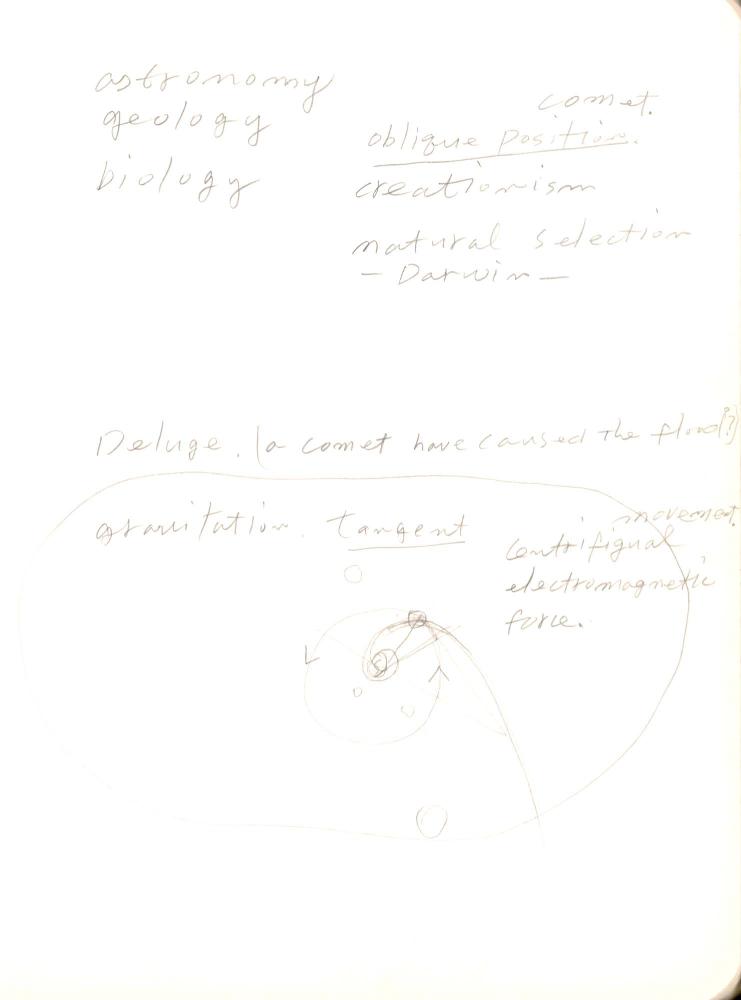 astronomy
geology
biology
comet.
oblique position.
creationism
natural selection
- Darwin -
Deluge. (a comet have caused the flood?)
gravitation. tangent
movement.
centrifigual
electromagnetic
force.